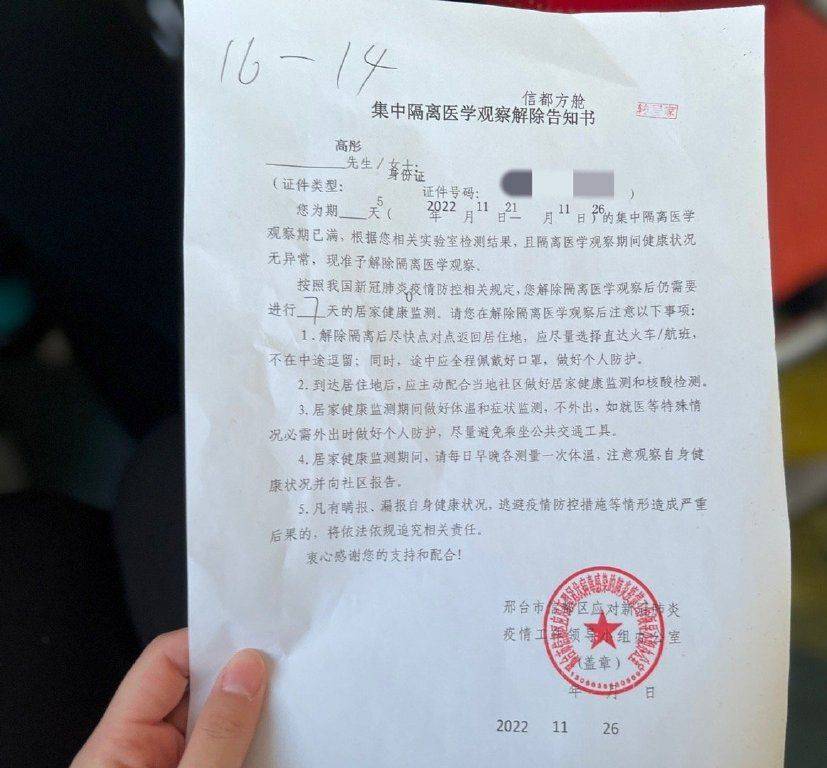 16-14
信都方舱
集中隔离医学观察解除告知书
高彤
______先生/女士:
身份证
(证件类型:        证件号码:        )
5  2022  11  21  11  26
您为期___天(  年  月  日—  月  日)的集中隔离医学
观察期已满、根据您相关实验室检测结果,且隔离医学观察期间健康状况
无异常,现准予解除隔离医学观察、
按照我国新冠肺炎疫情防控相关规定,您解除隔离医学观察后仍需要
0
进行7天的居家健康监测、请您在解除隔离医学观察后注意以下事项:
1.解除隔离后尽快点对点返回居住地,应尽量选择直达火车/航班,
不在中途逗留;同时,途中应全程佩戴好口罩,做好个人防护。
2.到达居住地后,应主动配合当地社区做好居家健康监测和核酸检测。
3.居家健康监测期间做好体温和症状监测,不外出,如就医等特殊情
况必需外出时做好个人防护,尽量避免乘坐公共交通工具。
4.居家健康监测期间,请每日早晚各测量一次体温,注意观察自身健
康状况并向社区报告。
5.凡有瞒报、漏报自身健康状况,逃避疫情防控措施等情形造成严重
后果的,将依法依规追究相关责任。
衷心感谢您的支持和配合!
邢台市信都区应对新冠肺炎
疫情工作领导小组办公室
(盖章)
年  月  日
2022  11  26